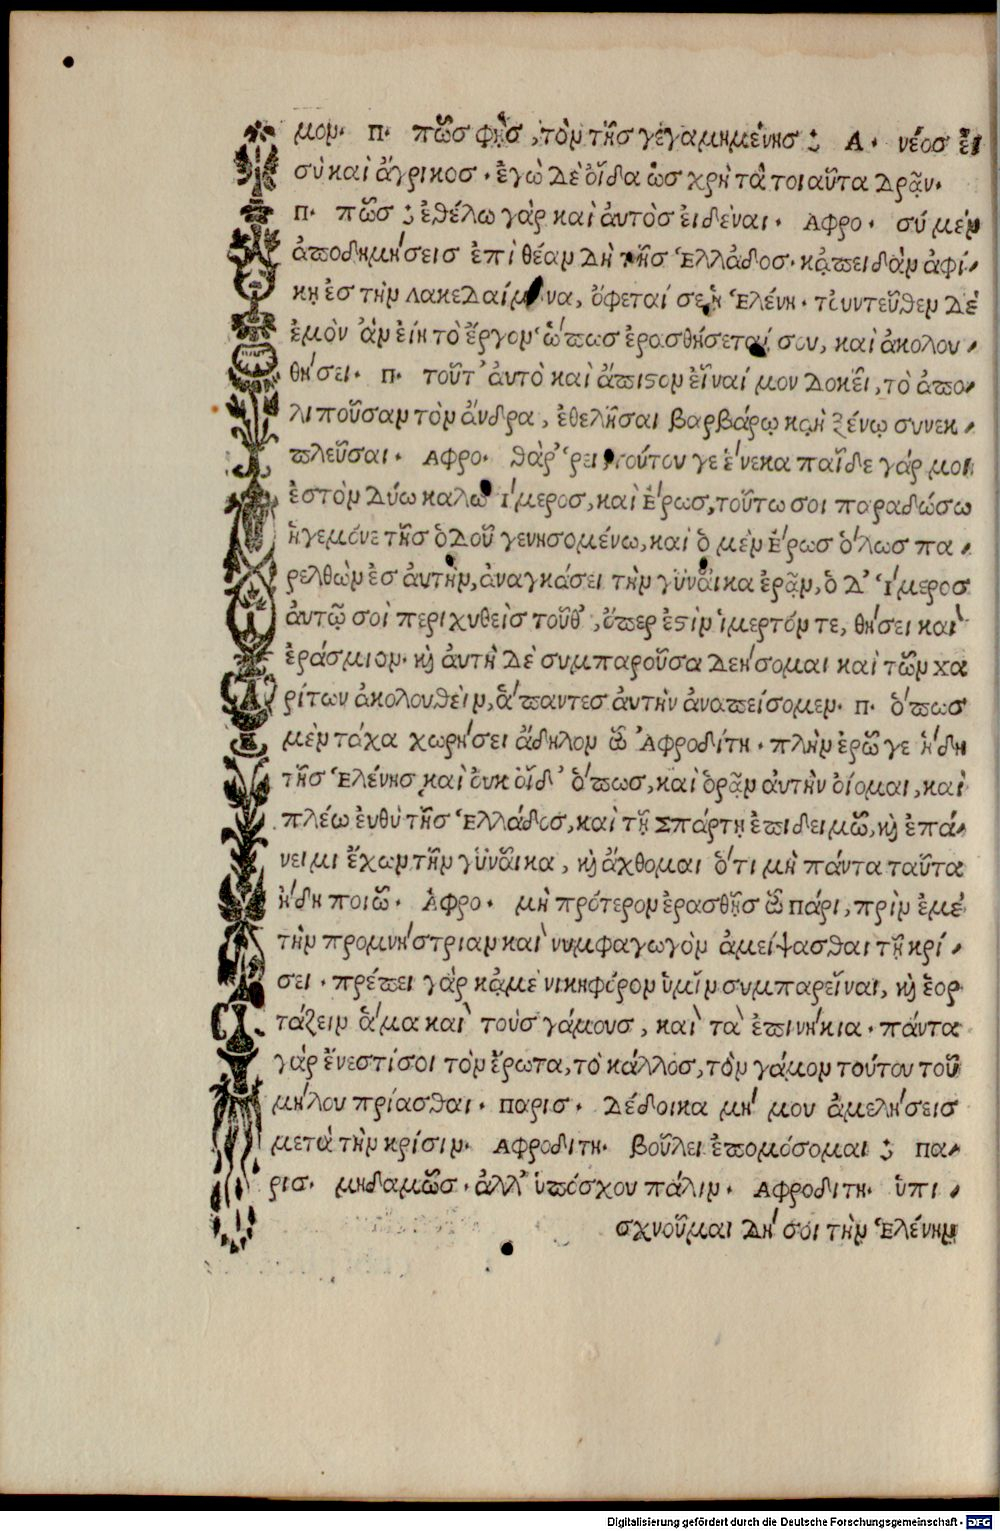 μον· Π· πῶσ φῂσ, τὸν τῆσ γεγαμημένησ ; Α· νέοσ εἶ
σὺ καὶ ἄγρικοσ· ἐγὼ δὲ ὀῖδα ὡσ χρὴ τὰ τοιαῦτα δρᾷν·
Π· πῶσ ; ἐθέλω γὰρ καὶ ἀυτὸσ ἐιδέναι· ΑΦΡΟ· σύ μὲν
ἀποδημήσεισ ἐπὶ θέαν δὴ τῆσ Ἑλλάδοσ· κᾀπειδὰν ἀφί-
κῃ ἐσ τὴν Λακεδαίμονα, ὄψεταί σε ἡ Ἑλένη· τ̓ουντεῦθεν δὲ
ἐμὸν ἂν ἐίη τὸ ἔργον ὅπωσ ἐρασθήσεταί σου, καὶ ἀκολου-
θήσει· Π· τοῦτ' ἀυτὸ καὶ ἄπιστον ἐῖναί μον δοκεῖ, τὸ ἀπο-
λιποῦσαν τὸν ἄνδρα, ἐθελῆσαι βαρβάρῳ κᾳὴ ξένῳ συνεκ-
πλεῦσαι· ΑΦΡΟ· θάῤῥει τούτου γε ἕνεκα παῖδε γάρ μοι
ἐστὸν δύω καλὼ Ἵμεροσ, καὶ Ἔρωσ, τοῦτω σοι παραδώσω
ἡγεμόνε τῆσ ὁδοῦ γενησομένω, καὶ ὁ μὲν Ἔρωσ ὅλωσ πα-
ρελθὼν ἐσ ἀυτὴν, ἀναγκάσει τὴν γὑνᾶικα ἐρᾷν, ὁ δ' Ἵμεροσ
ἀυτῷ σοὶ περιχυθεὶσ τοῦθ', ὅπερ ἐστὶν ἱμερτόν τε, θήσει καὶ
ἐράσμιον· κὶ ἀυτὴ δὲ συμπαροῦσα δεήσομαι καὶ τῶν χα
ρίτων ἀκολουθεὶν, ἅπαντεσ ἀυτὴν ἀναπείσομεν· Π· ὅπωσ
μὲν τάχα χωρήσει ἄδηλον ὦ Ἀφροδίτη· πλὴν ἐρῶ γε ἤδη
τῆσ Ἑλένησ καὶ ὀυκ ὀῖδ' ὅπωσ, καὶ ὁρᾷν ἀυτὴν ὀίομαι, καὶ
πλέω ἐυθὺ τῆσ Ἑλλάδοσ, καὶ τῇ Σπάρτῃ ἐπιδειμῶ, κὶ ἐπά-
νειμι ἔχων τὴν γὑνᾶικα, κὶ ἄχθομαι ὅτι μὴ πάντα ταῦτα
ἤδη ποιῶ· ἈΦΡΟ· μὴ πρότερον ἐρασθῇσ ὦ Πάρι, πρὶν ἐμὲ
τὴν προμνήστριαν καὶ νυμφαγωγὸν ἀμείψασθαι τῇ κρί-
σει· πρέπει γὰρ κᾀμὲ νικηφόρον ὑμῖν συμπαρεῖναι, κὶ ἑορ
τάζειν ἅμα καὶ τοὺσ γάμουσ, καὶ τὰ ἐπινήκια· πάντα
γὰρ ἔνεστίσοι τὸν ἔρωτα, τὸ κάλλοσ, τὸν γάμον τούτου τοῦ
μήλου πρίασθαι· ΠΑΡΙΣ· δέδοικα μή μου ἀμελήσεισ
μετὰ τὴν κρίσιν· ΑΦΡΟΔΙΤΗ· βούλει ἐπομόσομαι ; ΠΑ-
ΡΙΣ· μηδαμῶσ· ἀλλ' ὑπόσχου πάλιν· ΑΦΡΟΔΙΤΗ· ὑπι-
σχνοῦμαι δή σοι τὴν Ἑλένην
Digitalisierung gefördert durch die Deutsche Forschungsgemeinschaft - DFG